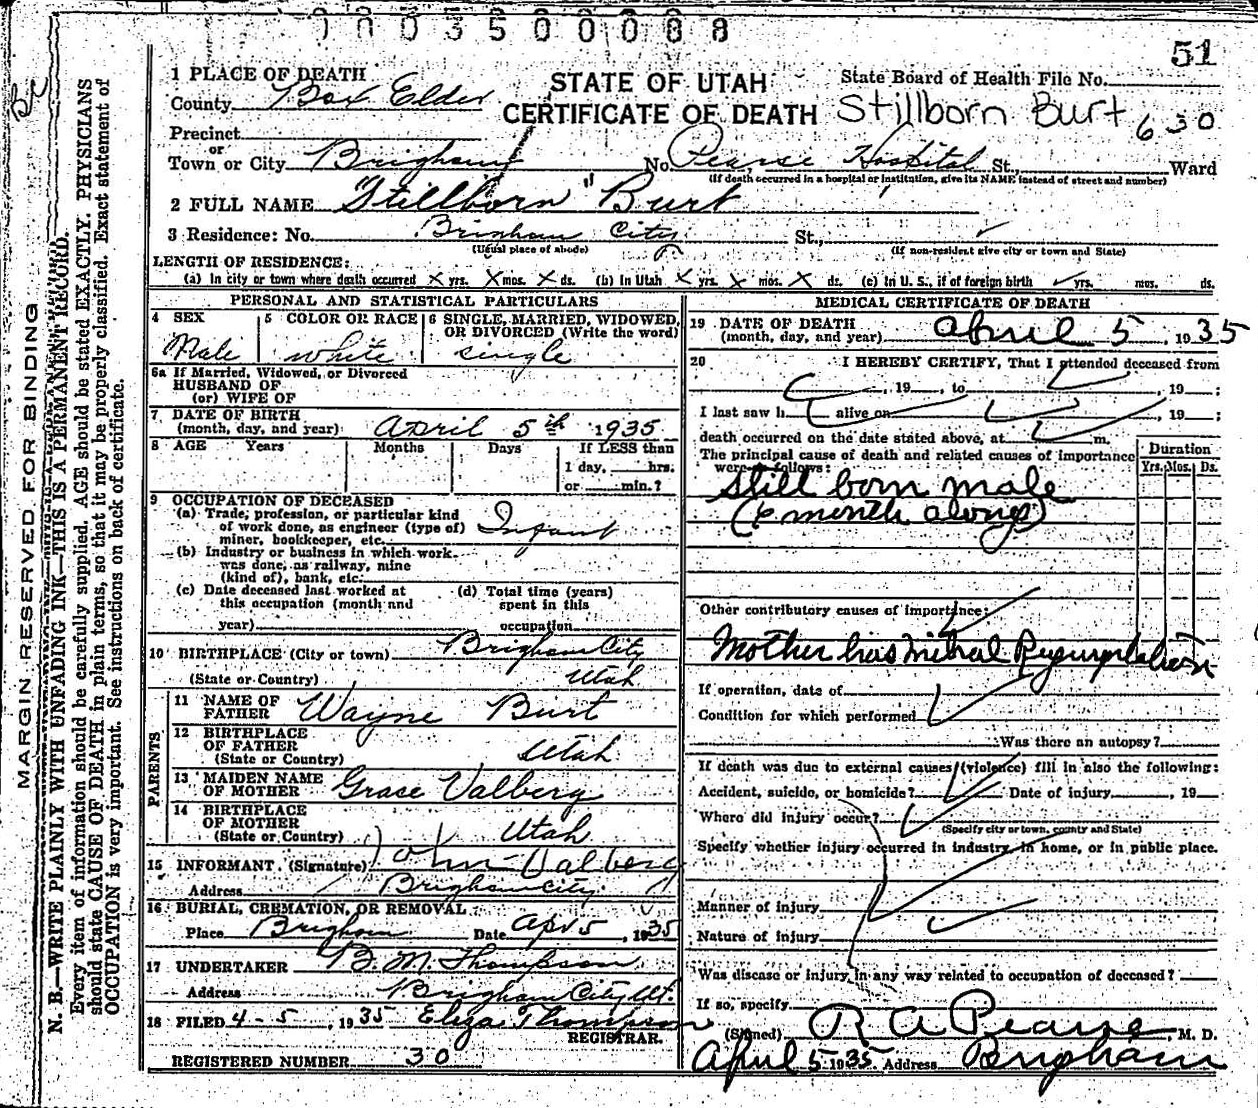 0 0 3 5 0 0 0 8 8
51
1 PLACE OF DEATH
STATE OF UTAH
State Board of Health File No.
County Box Elder
CERTIFICATE OF DEATH
Stillborn Burt 630
Precinct
or
Town or City Brigham No. Pearse Hospital St., Ward
(If death occurred in a hospital or institution, give its NAME instead of street and number)
2 FULL NAME "Stillborn" Burt
3 Residence: No. Brigham City St.,
(Usual place of abode) (If non-resident give city or town and State)
LENGTH OF RESIDENCE:
(a) In city or town where death occurred X yrs. X mos. X ds. (b) In Utah X yrs. X mos. X ds. (c) In U. S., if of foreign birth yrs. mos. ds.
PERSONAL AND STATISTICAL PARTICULARS
4 SEX
Male
5 COLOR OR RACE
white
6 SINGLE, MARRIED, WIDOWED,
OR DIVORCED (Write the word)
single
6a If Married, Widowed, or Divorced
HUSBAND OF
(or) WIFE OF
7 DATE OF BIRTH
(month, day, and year) April 5th 1935
8 AGE Years Months Days If LESS than
1 day, hrs.
or min.?
9 OCCUPATION OF DECEASED
(a) Trade, profession, or particular kind
of work done, as engineer (type of)
miner, bookkeeper, etc. Infant
(b) Industry or business in which work
was done, as railway, mine
(kind of), bank, etc.
(c) Date deceased last worked at
this occupation (month and
year)
(d) Total time (years)
spent in this
occupation
10 BIRTHPLACE (City or town) Brigham City
(State or Country) Utah
PARENTS
11 NAME OF
FATHER Wayne Burt
12 BIRTHPLACE
OF FATHER
(State or Country) Utah
13 MAIDEN NAME
OF MOTHER Grace Valberg
14 BIRTHPLACE
OF MOTHER
(State or Country) Utah
15 INFORMANT (Signature) John Valberg
Address Brigham City
16 BURIAL, CREMATION, OR REMOVAL
Place Brigham Date Apr 5, 1935
17 UNDERTAKER B. M. Thompson
Address Brigham City Ut.
18 FILED 4-5, 1935 Eliza Thompson
REGISTRAR.
REGISTERED NUMBER 30
MEDICAL CERTIFICATE OF DEATH
19 DATE OF DEATH
(month, day, and year) April 5, 1935
20 I HEREBY CERTIFY, That I attended deceased from
, 19 , to , 19 ;
I last saw h alive on , 19 ;
death occurred on the date stated above, at m.
The principal cause of death and related causes of importance
were as follows:
Duration
Yrs. Mos. Ds.
Still born male
(6 month along)
Other contributory causes of importance:
Mother has Mitral Regurgitation
If operation, date of
Condition for which performed
Was there an autopsy?
If death was due to external causes (violence) fill in also the following:
Accident, suicide, or homicide? Date of injury , 19
Where did injury occur?
(Specify city or town, county and State)
Specify whether injury occurred in industry, in home, or in public place.
Manner of injury
Nature of injury
Was disease or injury in any way related to occupation of deceased?
If so, specify
(Signed) R A Pearse, M. D.
April 5 1935 Address Brigham
MARGIN RESERVED FOR BINDING
N. B.—WRITE PLAINLY WITH UNFADING INK—THIS IS A PERMANENT RECORD.
Every item of information should be carefully supplied. AGE should be stated EXACTLY. PHYSICIANS
should state CAUSE OF DEATH in plain terms, so that it may be properly classified. Exact statement of
OCCUPATION is very important. See instructions on back of certificate.